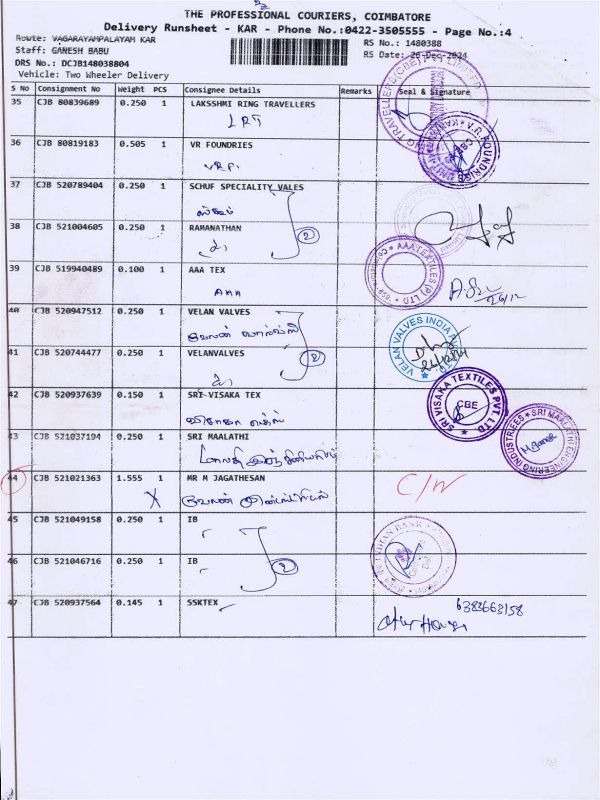 THE PROFESSIONAL COURIERS, COIMBATORE
Delivery Runsheet - KAR - Phone No.:0422-3505555 - Page No.:4
Route: VAGARAYAMPALAYAM KAR
RS No.: 1480388
Staff: GANESH BABU
RS Date: 26-Dec-2024
DRS No.: DCJB148038804
Vehicle: Two Wheeler Delivery
S No Consignment No Weight PCS Consignee Details Remarks Seal & Signature
35 CJB 80839689 0.250 1 LAKSSHMI RING TRAVELLERS
LRT
36 CJB 80819183 0.505 1 VR FOUNDRIES
V.R. FOUNDRIES
37 CJB 520789404 0.250 1 SCHUF SPECIALITY VALES
38 CJB 521004605 0.250 1 RAMANATHAN
2
39 CJB 519940489 0.100 1 AAA TEX
AAA
AAA TEXTILES (P) LTD
40 CJB 520947512 0.250 1 VELAN VALVES
வேலன் வால்வ்ஸ்
VELAN VALVES INDIA
41 CJB 520744477 0.250 1 VELANVALVES
2
42 CJB 520937639 0.150 1 SRI-VISAKA TEX
SRI VISAKA TEXTILES PVT. LTD
CBE
43 CJB 521037194 0.250 1 SRI MAALATHI
SRI MAALATHI ENGINEERING INDUSTRIEES
44 CJB 521021363 1.555 1 MR M JAGATHESAN
C/W
45 CJB 521049158 0.250 1 IB
INDIAN BANK
46 CJB 521046716 0.250 1 IB
2
47 CJB 520937564 0.145 1 SSKTEX
6383663158